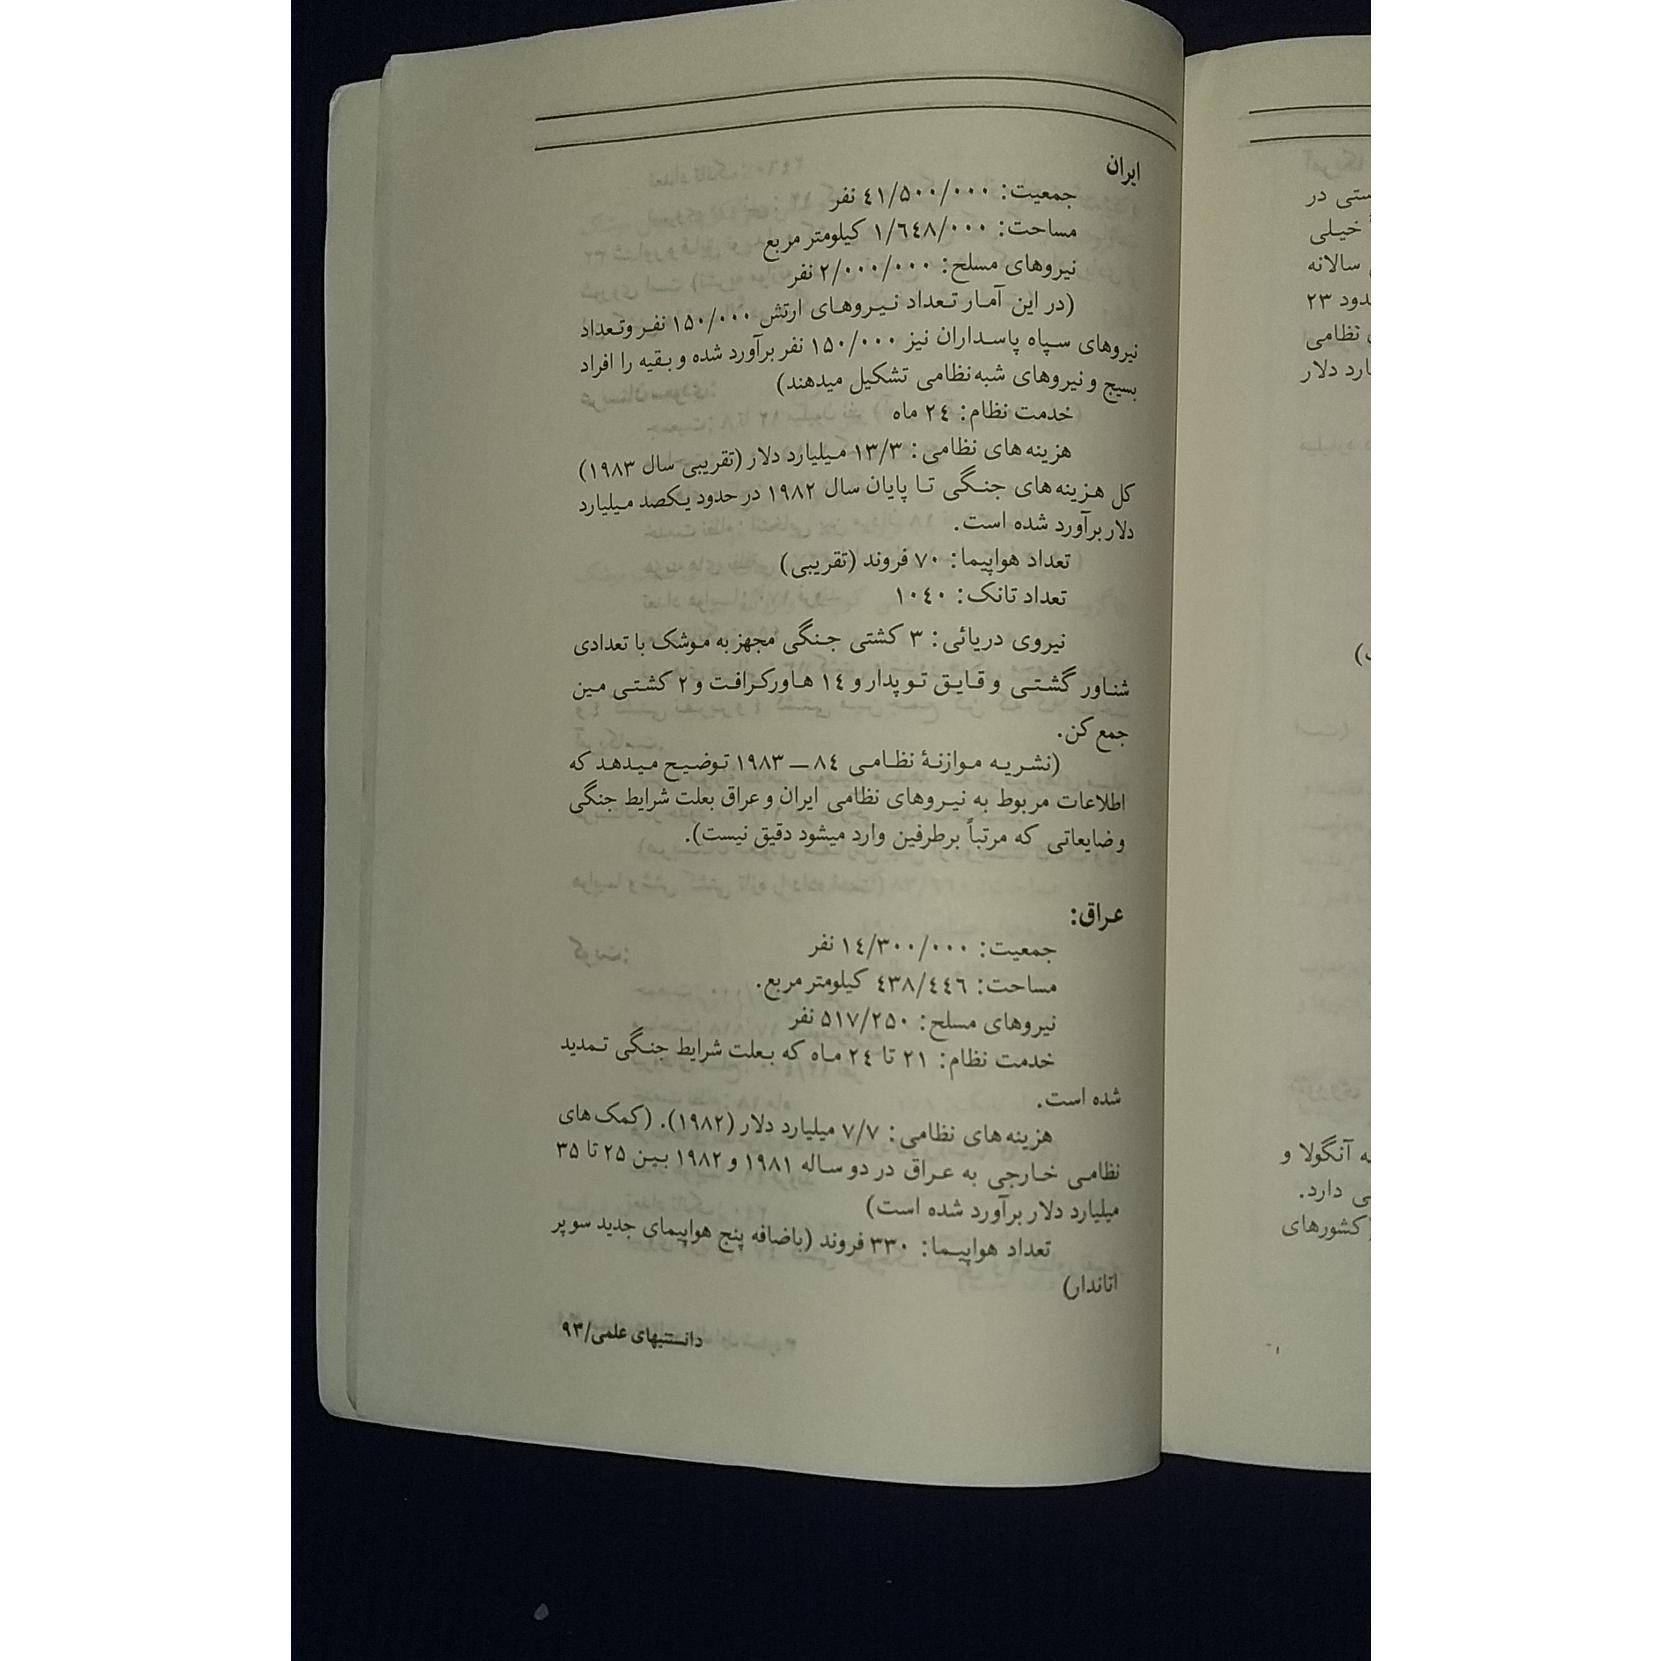 ایران
جمعیت: ٤١/٥٠٠/٠٠٠ نفر
مساحت: ١/٦٤٨/٠٠٠ کیلومتر مربع
نیروهای مسلح: ٢/٠٠٠/٠٠٠ نفر
(در این آمار تعداد نیروهای ارتش ١٥٠/٠٠٠ نفر وتعداد
نیروهای سپاه پاسداران نیز ١٥٠/٠٠٠ نفر برآورد شده و بقیه را افراد
بسیج و نیروهای شبه نظامی تشکیل میدهند)
خدمت نظام: ٢٤ ماه
هزینه های نظامی: ١٣/٣ میلیارد دلار (تقریبی سال ١٩٨٣)
کل هزینه های جنگی تا پایان سال ١٩٨٢ در حدود یکصد میلیارد
دلار برآورد شده است.
تعداد هواپیما: ٧٠ فروند (تقریبی)
تعداد تانک: ١٠٤٠
نیروی دریائی: ٣ کشتی جنگی مجهز به موشک با تعدادی
شناور گشتی و قایق توپدار و ١٤ هاورکرافت و ٢ کشتی مین
جمع کن.
(نشریه موازنهٔ نظامی ٨٤ — ١٩٨٣ توضیح میدهد که
اطلاعات مربوط به نیروهای نظامی ایران و عراق بعلت شرایط جنگی
و ضایعاتی که مرتباً برطرفین وارد میشود دقیق نیست).
عراق:
جمعیت: ١٤/٣٠٠/٠٠٠ نفر
مساحت: ٤٣٨/٤٤٦ کیلومتر مربع.
نیروهای مسلح: ٥١٧/٢٥٠ نفر
خدمت نظام: ٢١ تا ٢٤ ماه که بعلت شرایط جنگی تمدید
شده است.
هزینه های نظامی: ٧/٧ میلیارد دلار (١٩٨٢). (کمک های
نظامی خارجی به عراق در دو ساله ١٩٨١ و ١٩٨٢ بین ٢٥ تا ٣٥
میلیارد دلار برآورد شده است)
تعداد هواپیما: ٣٣٠ فروند (باضافه پنج هواپیمای جدید سوپر
اتاندار)
دانستیهای علمی/٩٣
آمریکا
ستی در
خیلی
سالانه
دود ٢٣
نظامی
یارد دلار
ه آنگولا و
ی دارد.
کشورهای